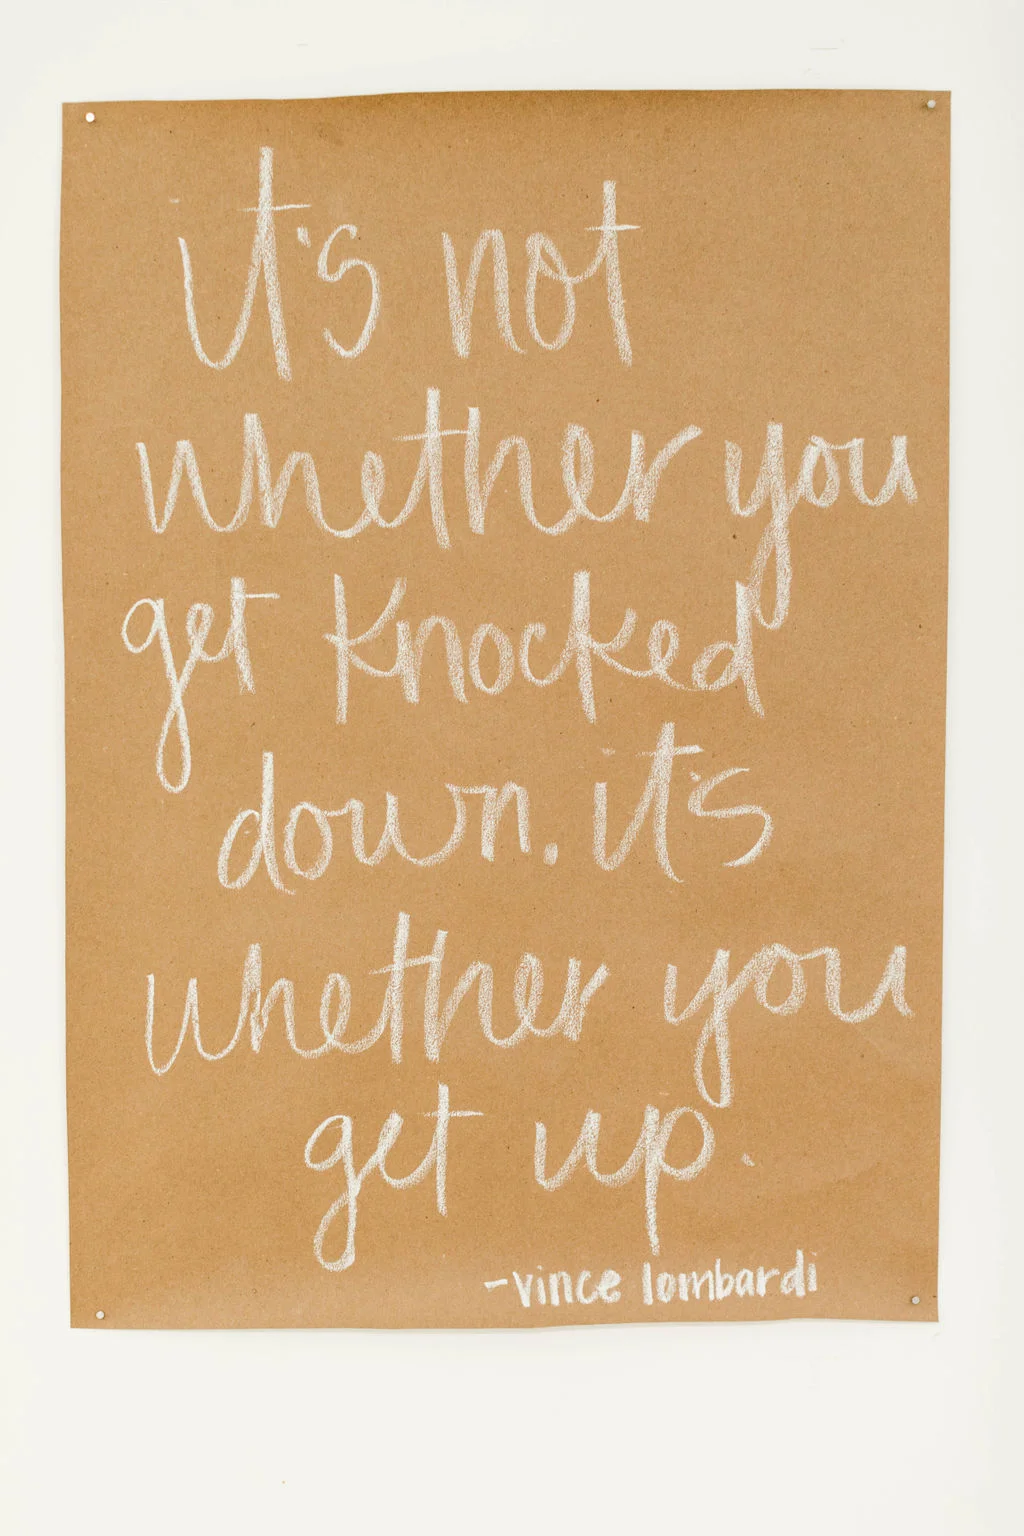 it's not
whether you
get knocked
down. it's
whether you
get up.
-vince lombardi